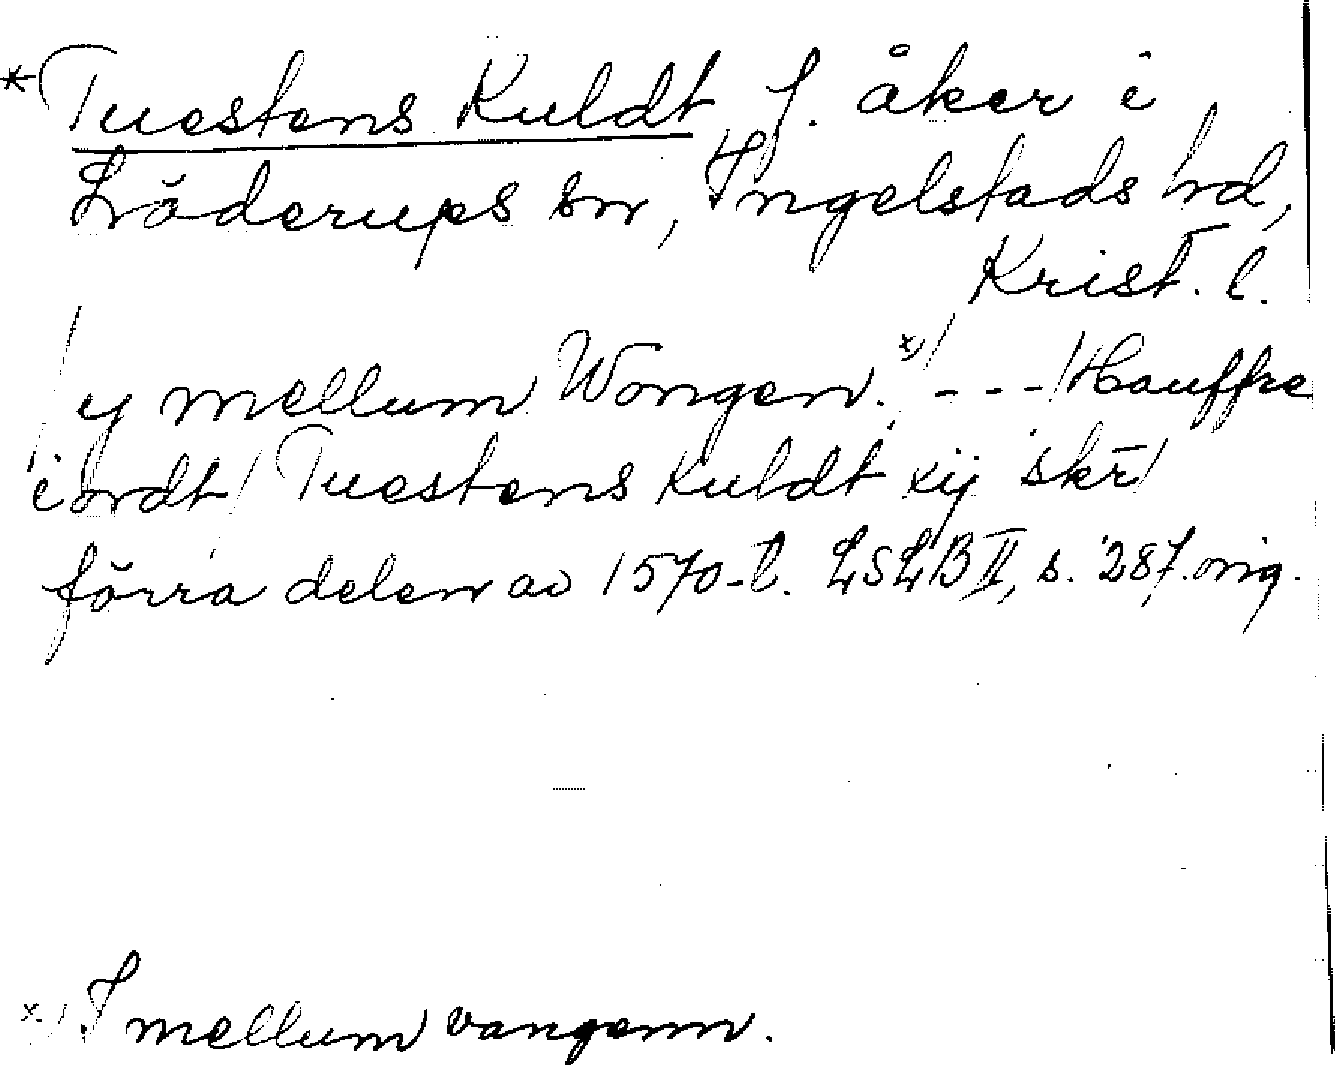 *Tuestens Kuldt f. åker i
Löderups sn, Ingelstads hd,
Krist. l.
/y mellum Wongen. x)/ - - - /Hauffre
iordt/ Tuestens Kuldt xij skr̄/
förra delen av 1570-t. LSLB II, s. 287. orig.
x) I mellum vangenn.